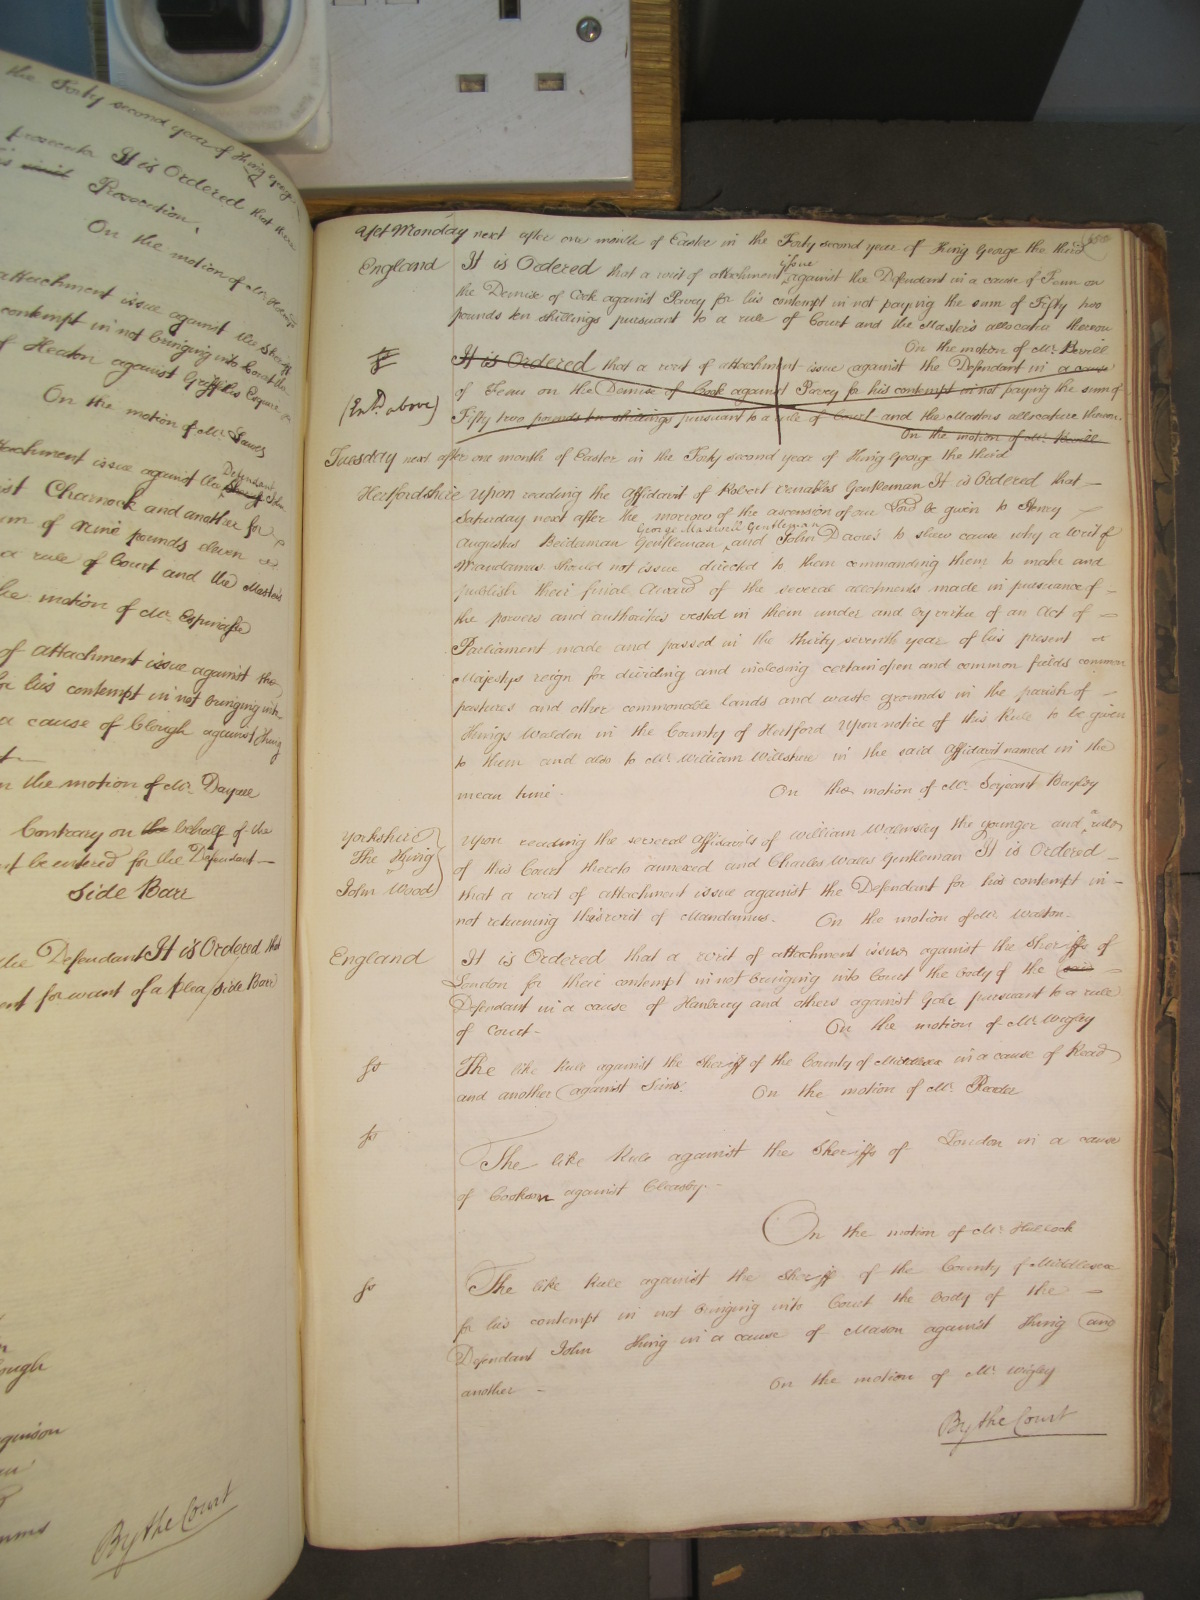 the Forty second year of King George
prosecutor It is Ordered that there
Prosecution
On the
motion of Mr
attachment issue against the Sheriff
contempt in not bringing into Court the
of Heaton against Griffiths Esquire
On the motion of Mr Lawes
attachment issue against the Defendant
Charnock and another for
sum of nine pounds eleven
a rule of Court and the Masters
the motion of Mr Espinasse
of attachment issue against the
for his contempt in not bringing into
a cause of Clough against King
On the motion of Mr Dayrell
Contrary on the behalf of the
be entered for the Defendant
Side Barr
the Defendant It is Ordered that
for want of a plea Side Barr
By the Court
Yet Monday next after one month of Easter in the Forty second year of King George the third
England It is Ordered that a writ of attachment issue against the Defendant in a cause of Fenn on
the Demise of Cook against Pavey for his contempt in not paying the sum of Fifty two
pounds ten shillings pursuant to a rule of Court and the Masters allocatur thereon
On the motion of Mr.
It is Ordered that a writ of attachment issue against the Defendant in a cause
of Fenn on the Demise of Cook against Pavey for his contempt in not paying the sum of
(Entd. above)
Fifty two pounds ten shillings pursuant to a rule of Court and the Masters allocature thereon
On the motion of Mr.
Tuesday next after one month of Easter in the Forty second year of King George the third
Hertfordshire Upon reading the affidavit of Robert Venables Gentleman It is Ordered that
Saturday next after the morrow of the ascension of our Lord be given to Henry
Augustus Beiderman Gentleman George Maxwell Gentleman and John Dacres to shew cause why a writ of
Mandamus should not issue directed to them commanding them to make and
publish their final Award of the several allotments made in pursuance of
the powers and authorities vested in them under and by virtue of an Act of
Parliament made and passed in the thirty seventh year of his present
Majestys reign for dividing and inclosing certain open and common fields common
pastures and other commonable lands and waste grounds in the parish of
Kings Waldon in the County of Hertford Upon notice of this Rule to be given
to them and also to Mr William Willshire in the said affidavit named in the
mean time. On the motion of Mr Serjeant Bayley
Yorkshire Upon reading the several affidavits of William Walmsley the younger and a rule
The King of this Court thereto annexed and Charles Wales Gentleman It is Ordered
John Wood that a writ of attachment issue against the Defendant for his contempt in
not returning this writ of Mandamus. On the motion of Mr. Walton
England It is Ordered that a writ of attachment issue against the Sheriffs of
London for their contempt in not bringing into Court the body of the said
Defendant in a cause of Hanbury and others against Gole pursuant to a rule
of Court On the motion of Mr Wigley
So The like Rule against the Sheriff of the County of Middlesex in a cause of Read
and another against Sims. On the motion of Mr. Reader
So The like Rule against the Sheriffs of London in a cause
of Cookson against Cleasby.
On the motion of Mr. Hullock
So The like Rule against the Sheriff of the County of Middlesex
for his contempt in not bringing into Court the body of the
Defendant John King in a cause of Mason against King and
another On the motion of Mr. Wigley
By the Court